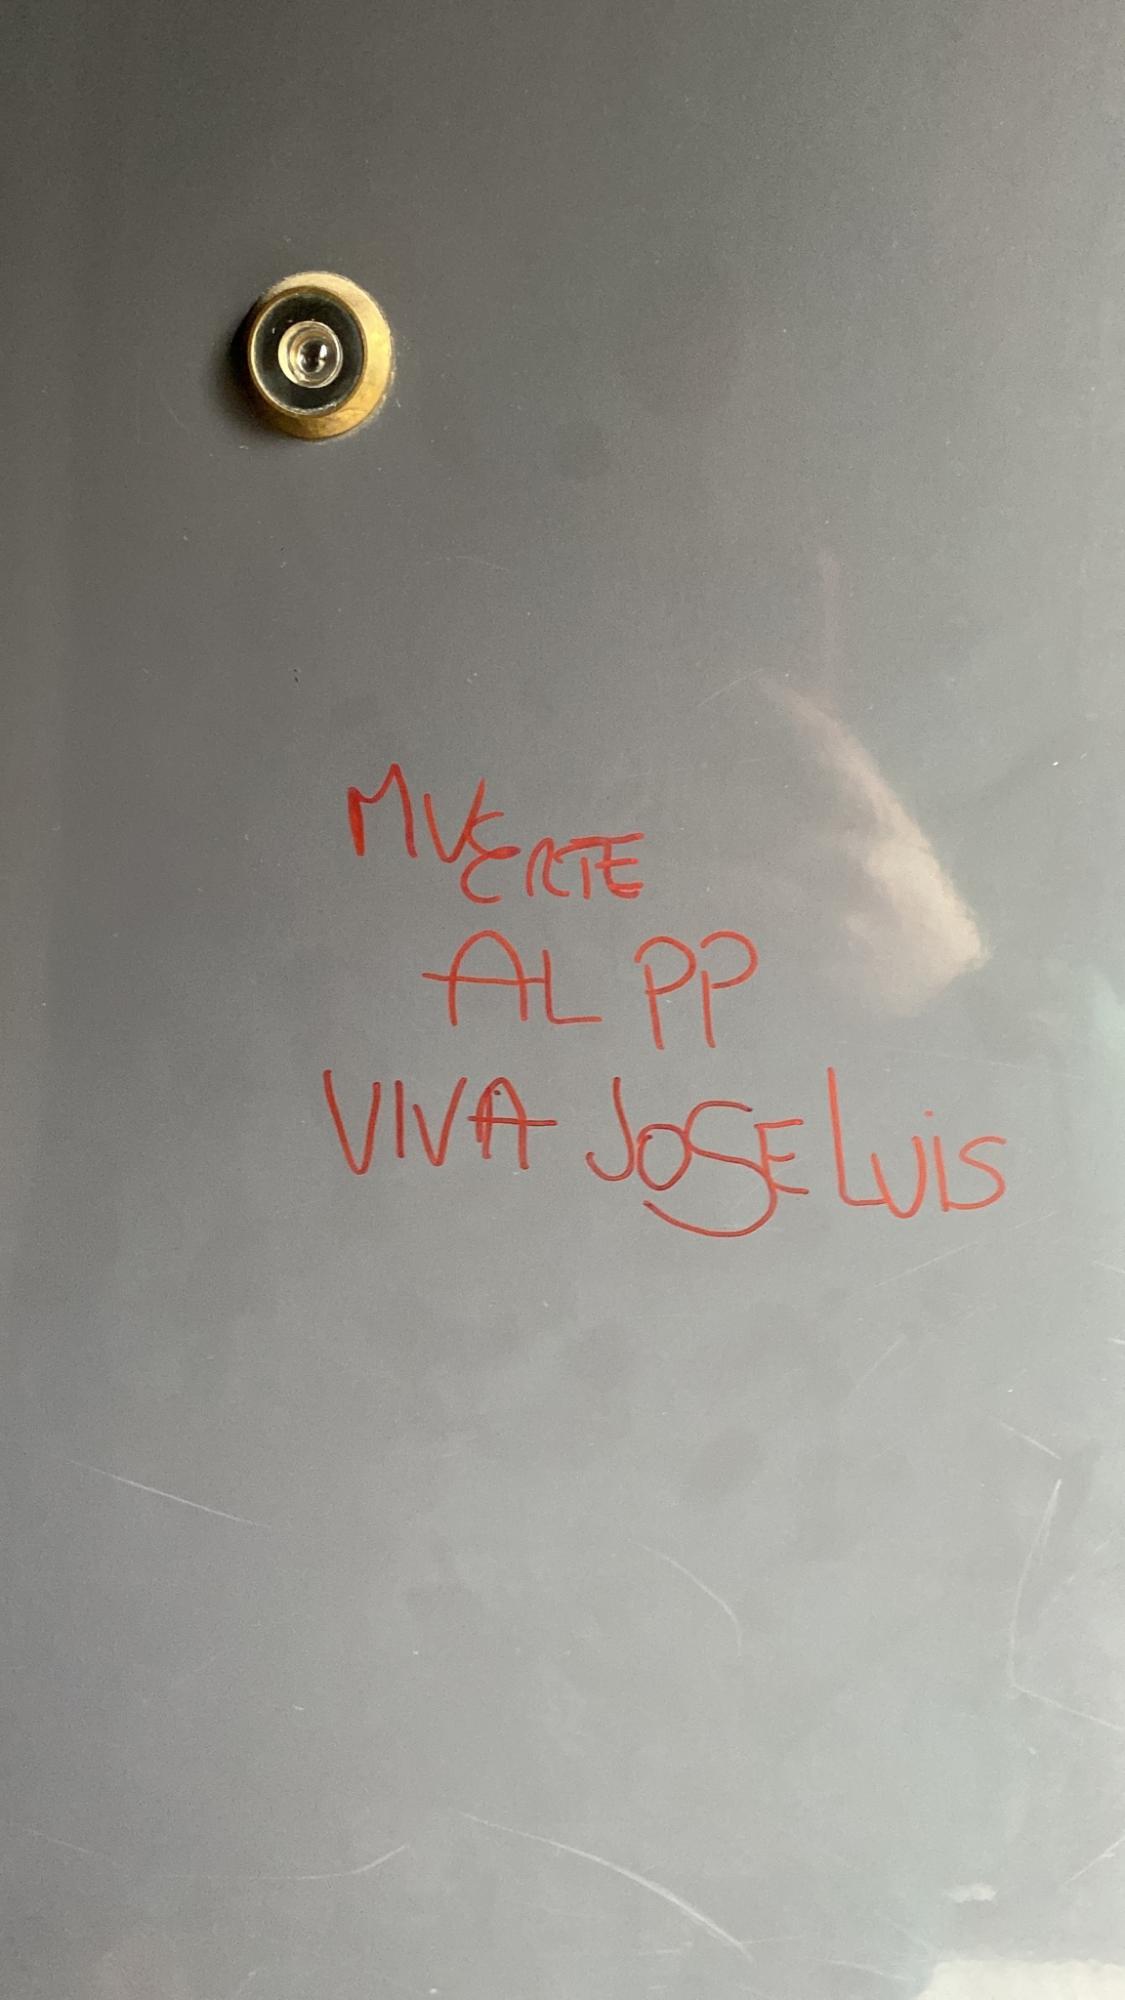 MUERTE
AL PP
VIVA JOSE LUiS